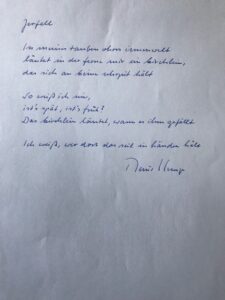 Zerfall
In meines tauben ohres innenwelt
läutet in der ferne mir ein kirchlein,
das sich an keine uhrzeit hält
So weiß ich nie,
ist's spät, ist's früh?
Das kirchlein läutet, wann es ihm gefällt
Ich weiß, wer dort das seil in händen hält
Reiner Kunze